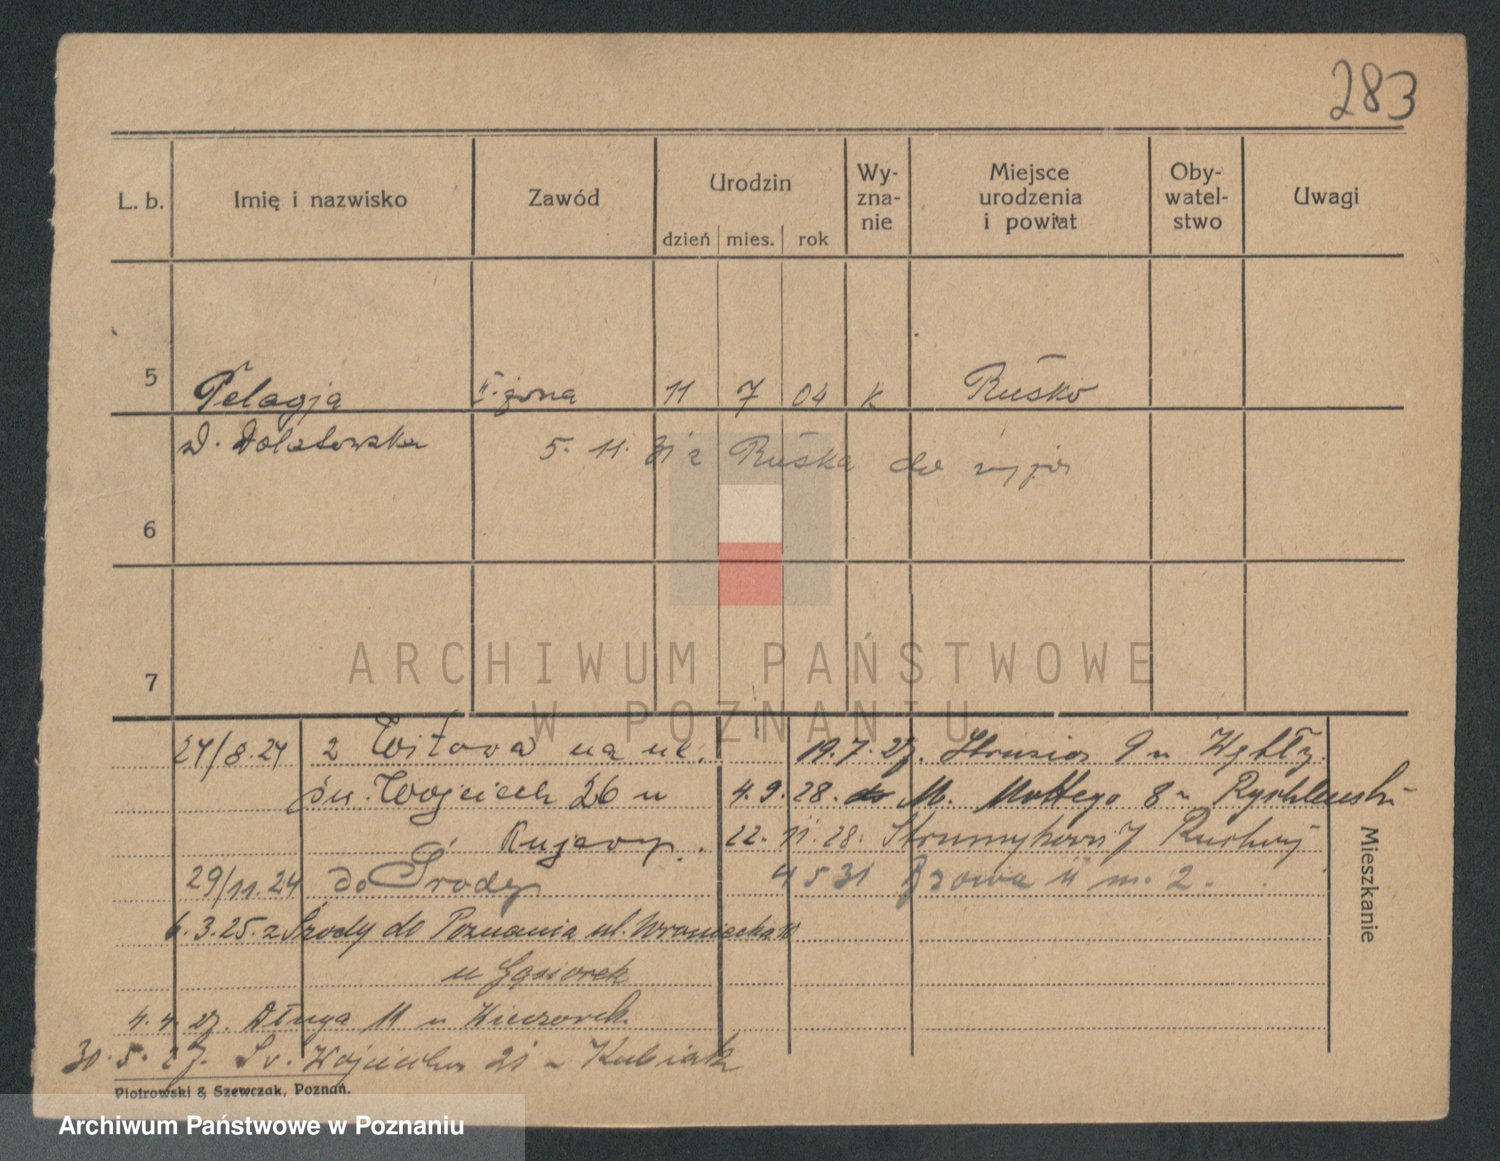 283
L. b.
Imię i nazwisko
Zawód
Urodzin
dzień mies. rok
Wy-
zna-
nie
Miejsce
urodzenia
i powiat
Oby-
watel-
stwo
Uwagi
5 Pelagja II. żona 11 7 04 K Rusko
5. 11. 31 z Ruska do
6
7
ARCHIWUM PAŃSTWOWE
W POZNANIU
24/8.24 z Witowa na ul.
św. Wojciech 26 u
Kujawy.
29/11.24 do Środy
6.3.25. z Środy do Poznania ul.
u Gąsiorek
4.4.27. Długa 11 u Wieczorek
30.5.27. Św. Wojciecha 21 u Kubiak
19.7.27. Strusia 9 u
4.9.28. do M. Mottego 8 u
22.11.28. 7
4 5 31 11 m. 2.
Mieszkanie
Piotrowski & Szewczak, Poznań.
Archiwum Państwowe w Poznaniu